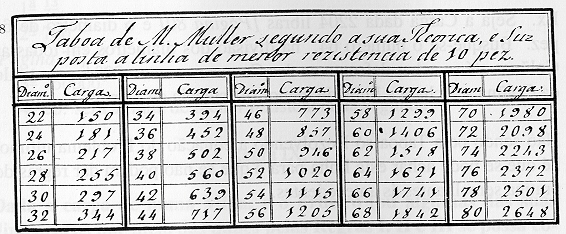 8
Taboa de M. Muller segundo a sua Theorica, e Su-
posta a linha de menor rezistencia de 10 pez.
Diam.º Carga. Diam.º Carga Diam.º Carga Diam.º Carga Diam.º Carga
22 150 34 394 46 773 58 1299 70 1980
24 181 36 452 48 857 60 1406 72 2098
26 217 38 502 50 946 62 1518 74 2243
28 255 40 560 52 1020 64 1621 76 2372
30 297 42 639 54 1115 66 1741 78 2501
32 344 44 717 56 1205 68 1842 80 2648